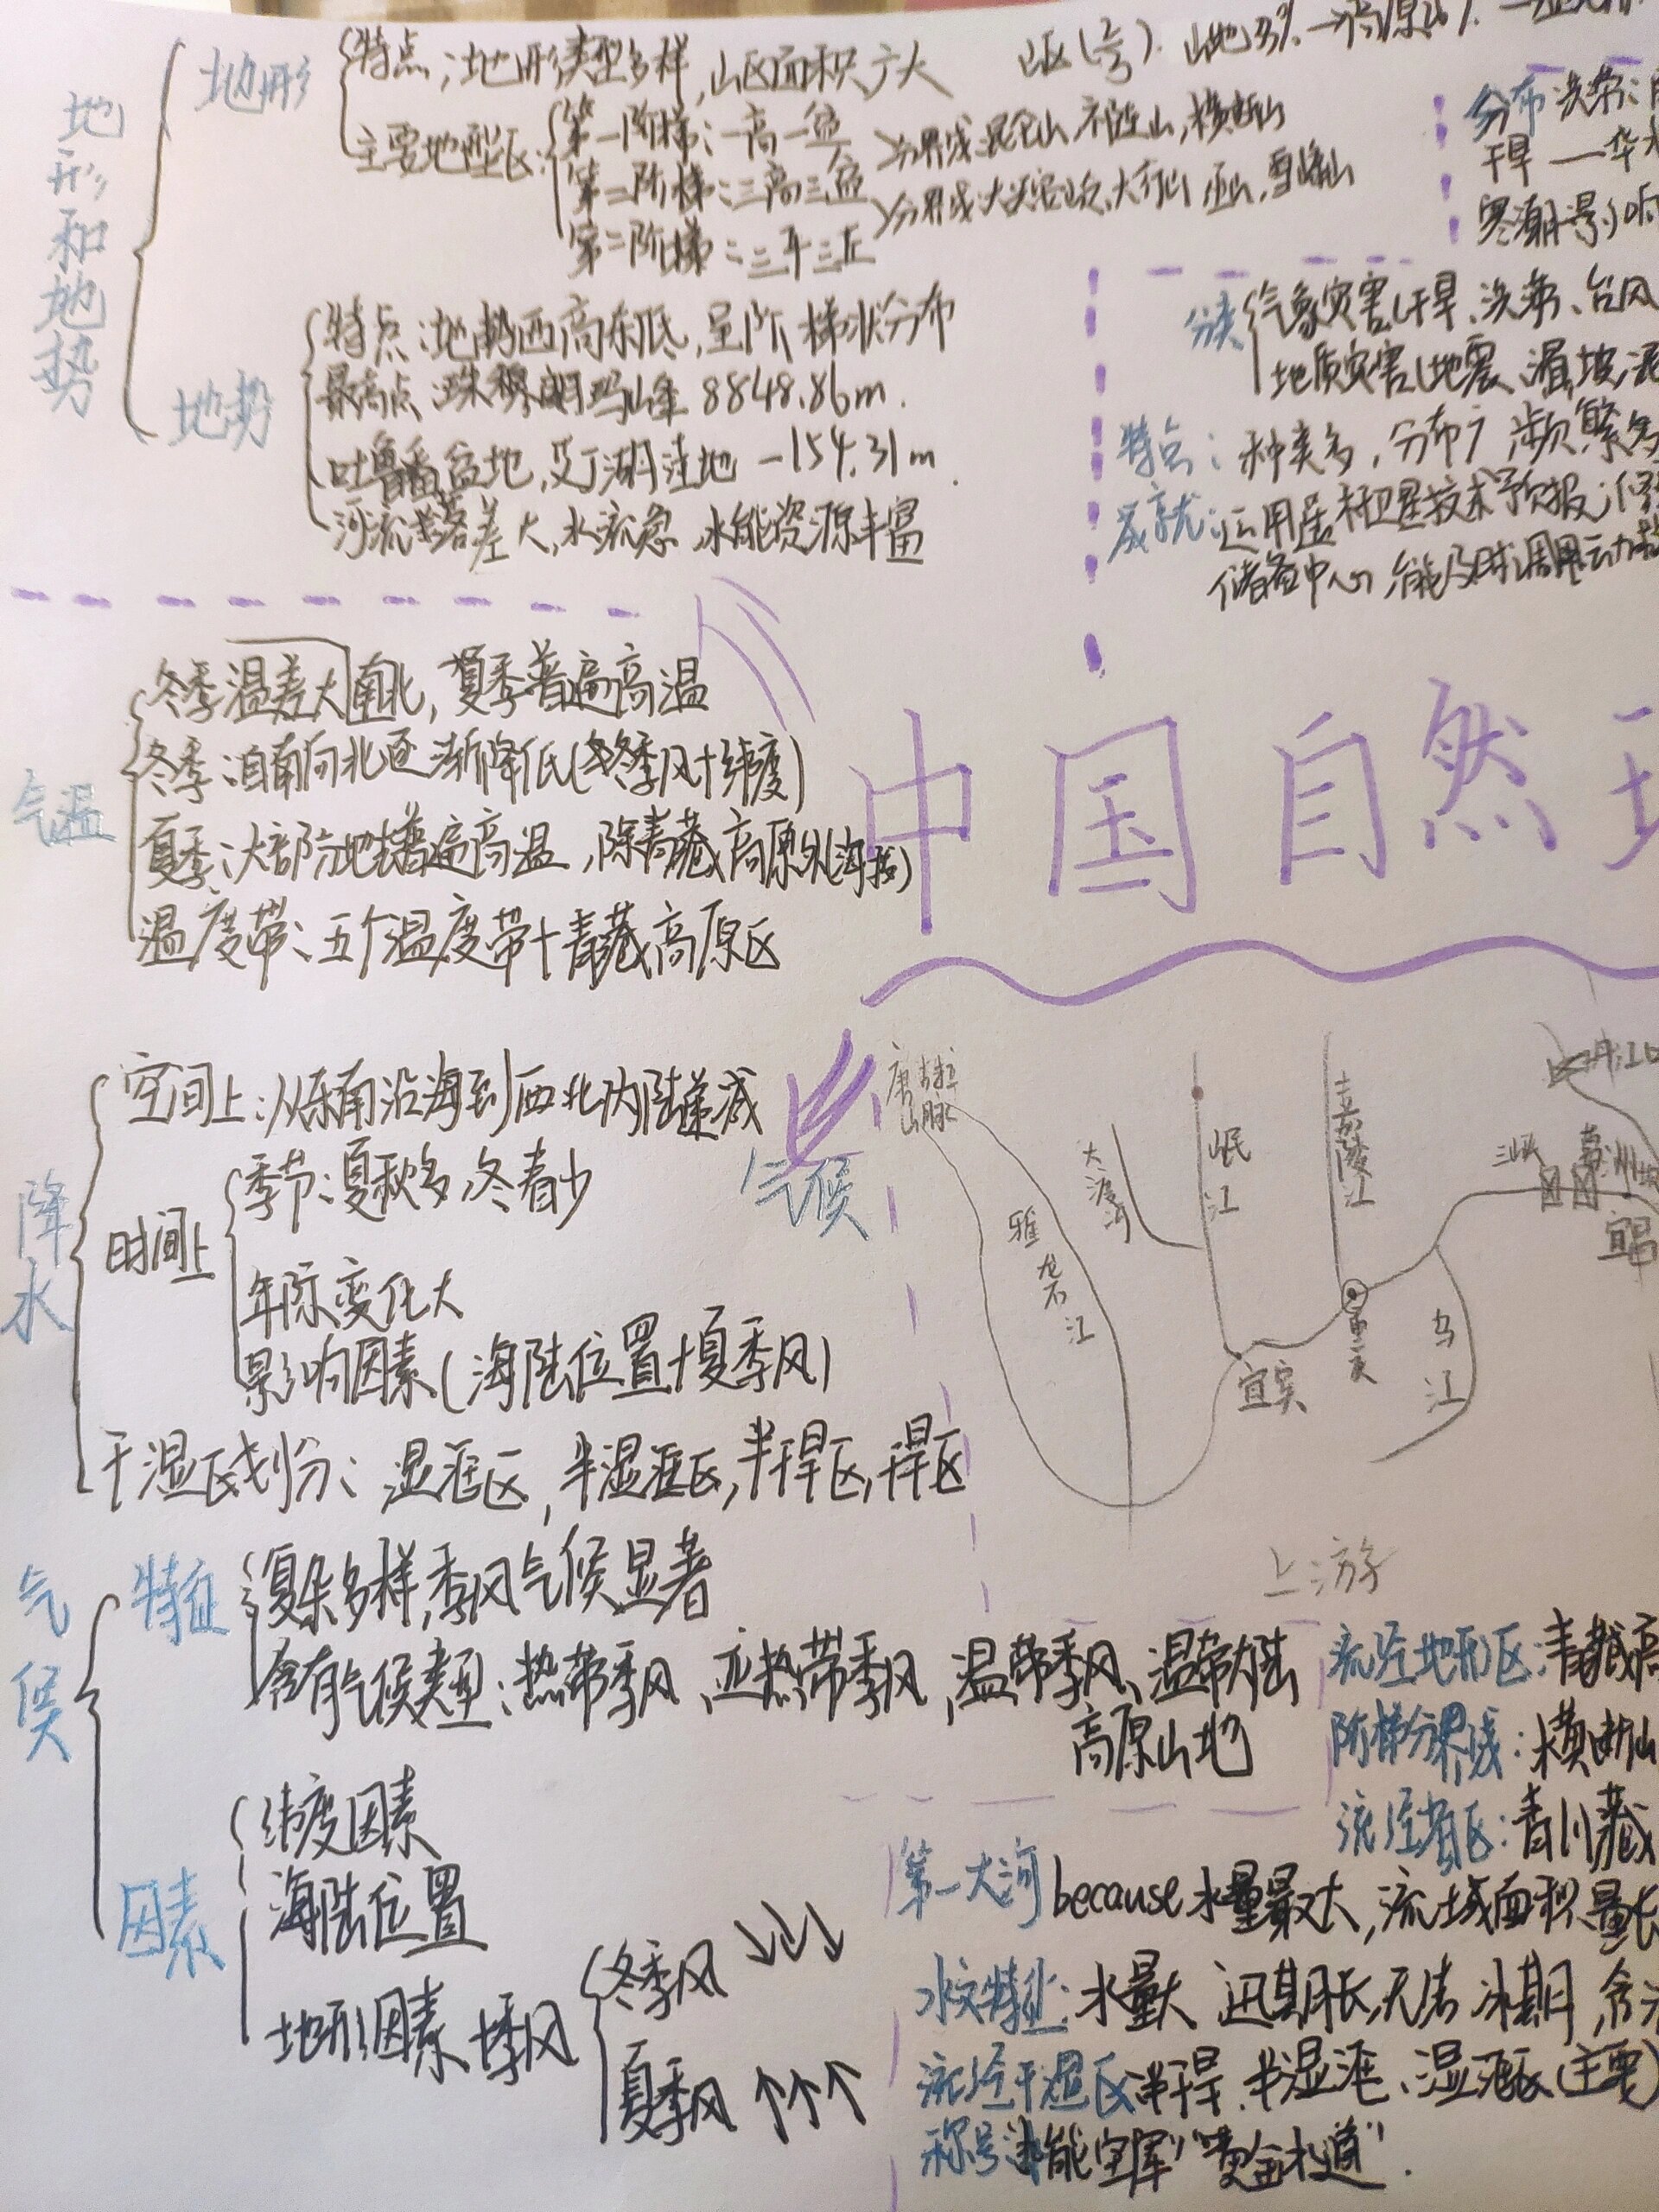 地形和地势
地形
特点：地形类型多样，山区面积广大
山区(2/3). 山地33% → 高原26%
主要地型区:
第一阶梯：一高一盆
分界线:昆仑山,祁连山,横断山
第二阶梯：三高三盆
分界线:大兴安岭,大行山,巫山,雪峰山
第三阶梯：三平三丘
地势
特点：地势西高东低，呈阶梯状分布
最高点:珠穆朗玛山峰 8848.86m.
吐鲁番盆地,艾丁湖洼地 -154.31m.
河流落差大,水流急,水能资源丰富
分布 洪涝:
干旱 — 华
寒潮影响
分类
气象灾害(干旱、洪涝、台风
地质灾害(地震、滑坡,泥
特点：种类多，分布广,频繁
成就：运用 卫星技术预报；
储备中心，能及时调用
中国自然
气温
冬季温差大南北，夏季普遍高温
冬季:自南向北逐渐降低(冬季风+纬度)
夏季：大部分地普遍高温，除青藏高原外(海拔)
温度带：五个温度带+青藏高原区
气候
降水
空间上：从东南沿海到西北内陆递减
时间上
季节:夏秋多,冬春少
年际变化大
影响因素(海陆位置+夏季风)
干湿区划分：湿润区，半湿润区，半干旱区，干旱区
唐古拉山脉
雅龙江
大渡河
岷江
嘉陵江
乌江
三峡
宜昌
重庆
宜宾
上游
气候
特征
复杂多样,季风气候显著
含有气候类型：热带季风、亚热带季风,温带季风、温带大陆
高原山地
因素
纬度因素
海陆位置
地形因素+季风
冬季风 ↘↘↘
夏季风 ↑↑↑
流经地形区：青藏高
阶梯分界线：横断山
流经省区：青川藏
第一大河 because 水量最大，流域面积最
水文特征:水量大 汛期长,无结冰期,含
流经干湿区:半干旱、半湿润、湿润区(主要)
称号:"水能宝库""黄金水道".